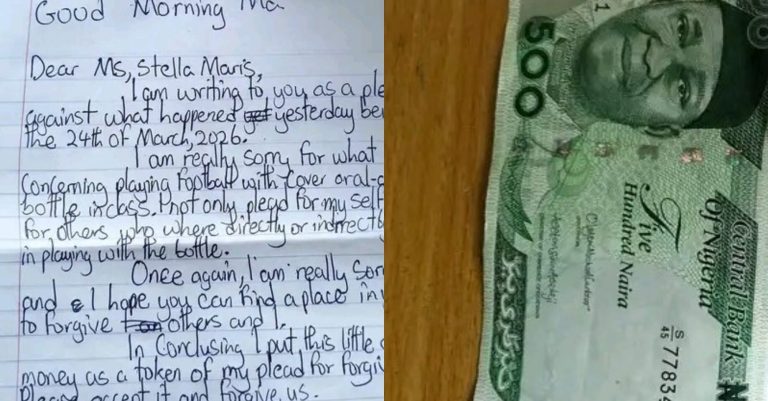 Good Morning Ma
Dear Ms, Stella Maris,
I am writing to, you as a ple
against what happened yesterday be
the 24th of March, 2026.
I am really sorry for what
Concerning playing football with cover oral-
bottle in class. I not only plead for my self
for others who where directly or indirect
in playing with the bottle.
Once again, I am really sor
and I hope you can find a place in
to forgive others and I.
In Conclusing I put this little
money as a token of my plead for forgi
Please accept it and forgive us.
500
1
Central Bank
Of Nigeria
Five
Hundred Naira
S/45 77834